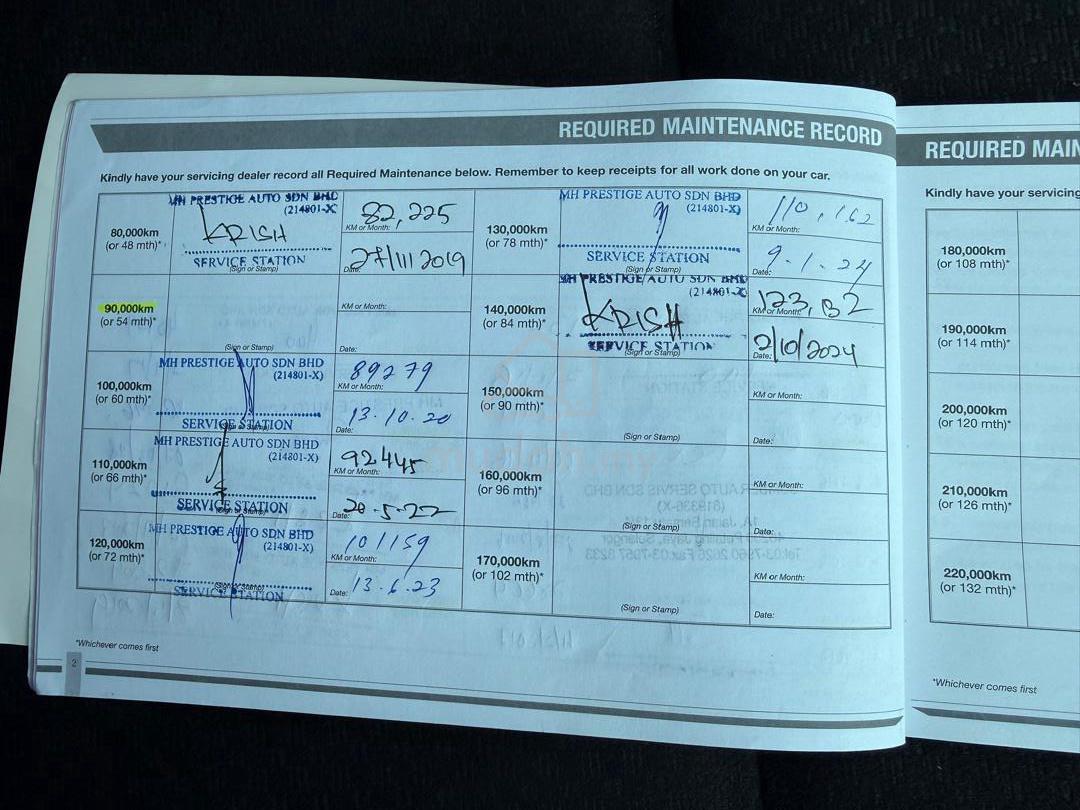 REQUIRED MAINTENANCE RECORD
Kindly have your servicing dealer record all Required Maintenance below. Remember to keep receipts for all work done on your car.
80,000km
(or 48 mth)*
MH PRESTIGE AUTO SDN BHD
(214801-X)
KRISH
SERVICE STATION
(Sign or Stamp)
82,225
KM or Month:
27/11/2019
Date:
90,000km
(or 54 mth)*
(Sign or Stamp)
KM or Month:
Date:
100,000km
(or 60 mth)*
MH PRESTIGE AUTO SDN BHD
(214801-X)
SERVICE STATION
89279
KM or Month:
13.10.20
Date:
110,000km
(or 66 mth)*
MH PRESTIGE AUTO SDN BHD
(214801-X)
SERVICE STATION
(Sign or Stamp)
92445
KM or Month:
20.5.22
Date:
120,000km
(or 72 mth)*
MH PRESTIGE AUTO SDN BHD
(214801-X)
(Sign or Stamp)
SERVICE STATION
101159
KM or Month:
13.6.23
Date:
130,000km
(or 78 mth)*
MH PRESTIGE AUTO SDN BHD
(214801-X)
SERVICE STATION
(Sign or Stamp)
110,162
KM or Month:
9.1.24
Date:
140,000km
(or 84 mth)*
MH PRESTIGE AUTO SDN BHD
(214801-X)
KRISH
SERVICE STATION
(Sign or Stamp)
KM or Month:
2/10/2024
Date:
150,000km
(or 90 mth)*
(Sign or Stamp)
KM or Month:
Date:
160,000km
(or 96 mth)*
(Sign or Stamp)
KM or Month:
Date:
170,000km
(or 102 mth)*
(Sign or Stamp)
KM or Month:
Date:
*Whichever comes first
2
REQUIRED MAIN
Kindly have your servicing
180,000km
(or 108 mth)*
190,000km
(or 114 mth)*
200,000km
(or 120 mth)*
210,000km
(or 126 mth)*
220,000km
(or 132 mth)*
*Whichever comes first